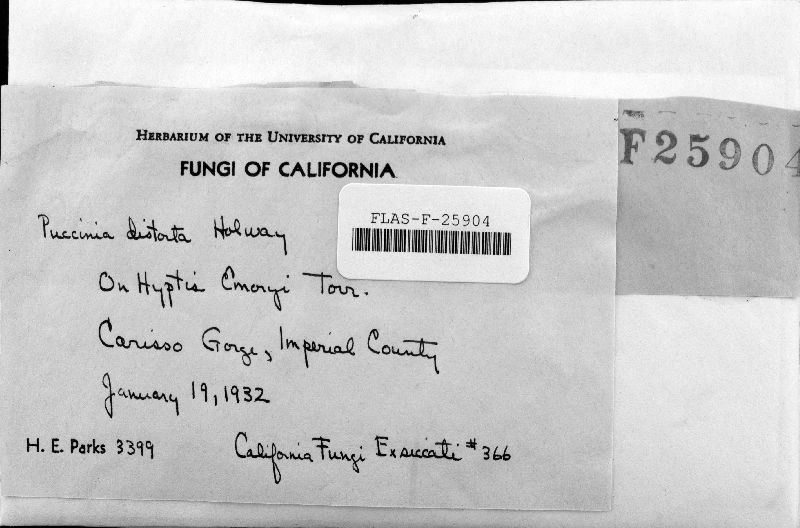 HERBARIUM OF THE UNIVERSITY OF CALIFORNIA
FUNGI OF CALIFORNIA
F25904
FLAS-F-25904
Puccinia distorta Holway
On Hyptis Emoryi Torr.
Carisso Gorge, Imperial County
January 19, 1932
H. E. Parks 3399
California Fungi Exsiccati #366